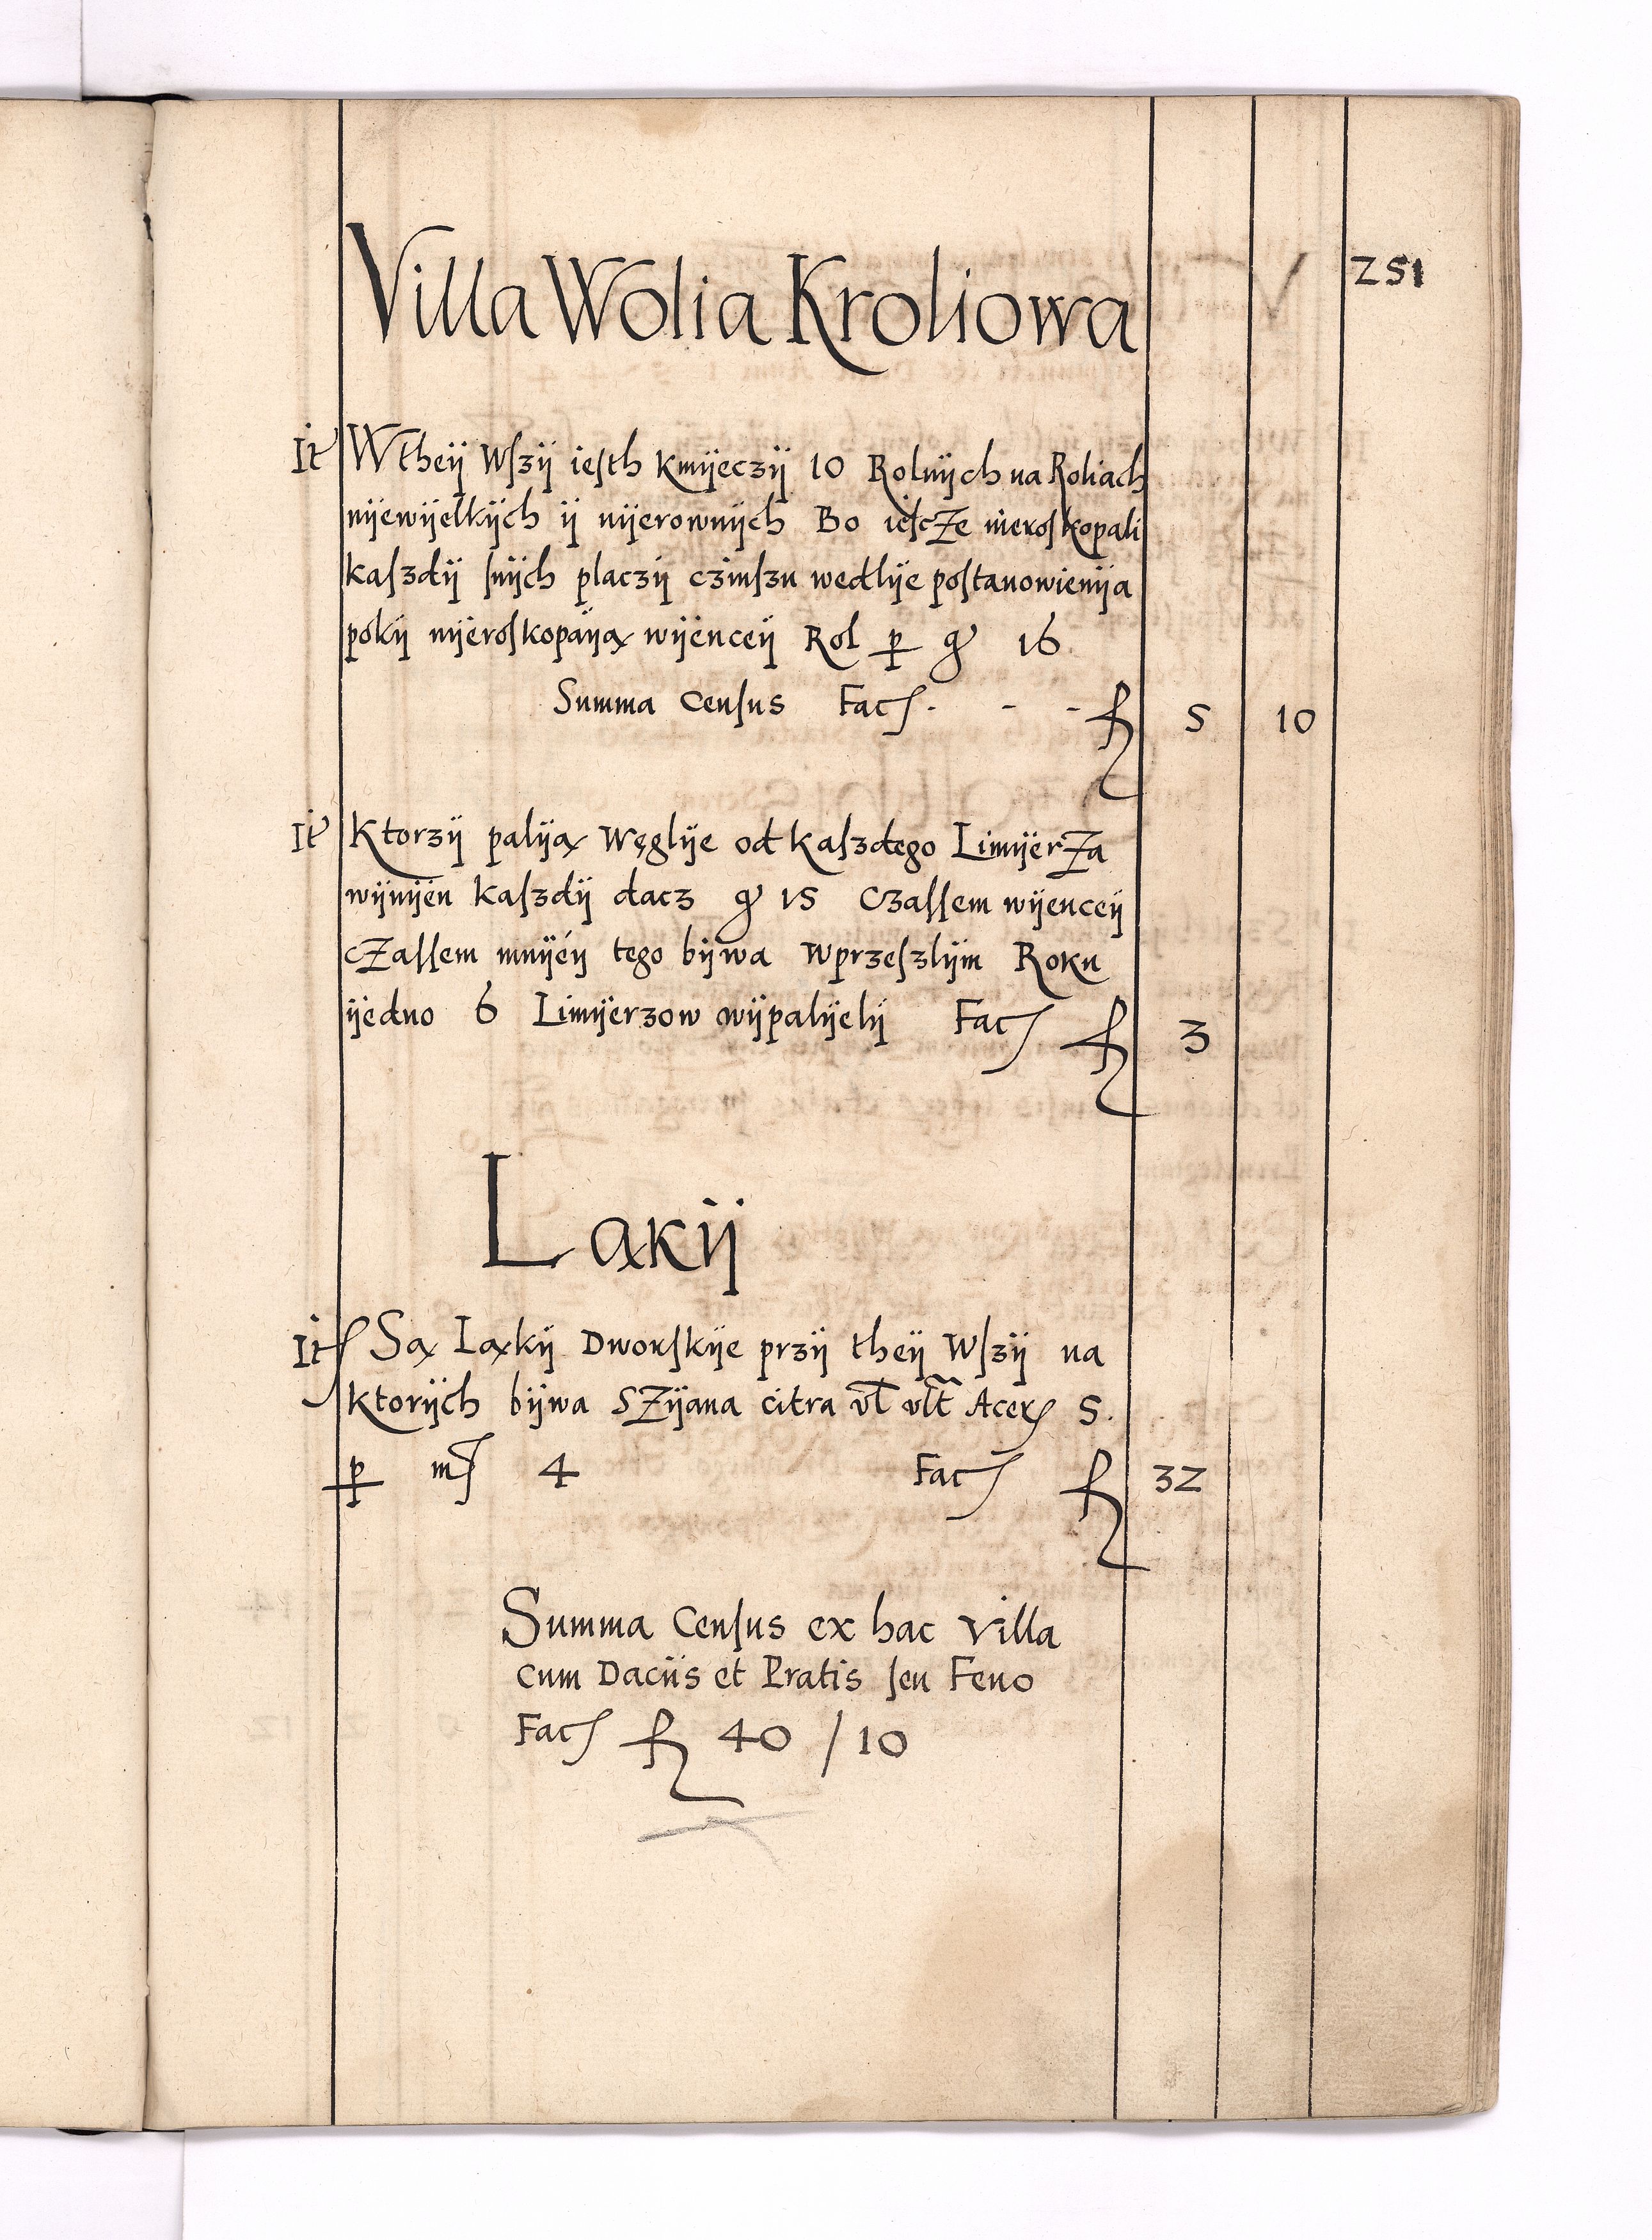 251
Villa Wolia Kroliowa
It Wtheÿ Wſzÿ ieſth Kmÿeczÿ 10 Rolnÿch na Roliach
nÿewÿelkÿch ÿ nÿerownÿch Bo ieſcze nieroſkopali
kaſzdÿ ſnÿch placzÿ czinſzu wedlÿe poſtanowienÿa
pokÿ nÿeroſkopaÿą wÿenceÿ Rol p gͬ 16
Summa Cenſus Facſ. - - fl 5 10
It Ktorzÿ palÿą Węglÿe od kaſzdego Limÿerza
wÿnÿen kaſzdÿ dacz gͬ 15 Czaſſem wÿenceÿ
czaſſem mnÿéÿ tego bÿwa Wprzeſzlÿm Roku
ÿedno 6 Limÿerzow wÿpalÿelÿ Facſ fl 3
Ląkÿ
It Są Ląkÿ Dworſkÿe przÿ theÿ Wſzÿ na
ktorÿch bÿwa Szÿana citra vl vlt̃ Acer 5.
p mſ 4 Facſ fl 32
Summa Cenſus ex hac Villa
cum Daciis et Pratis ſeu Feno
Facſ fl 40 / 10